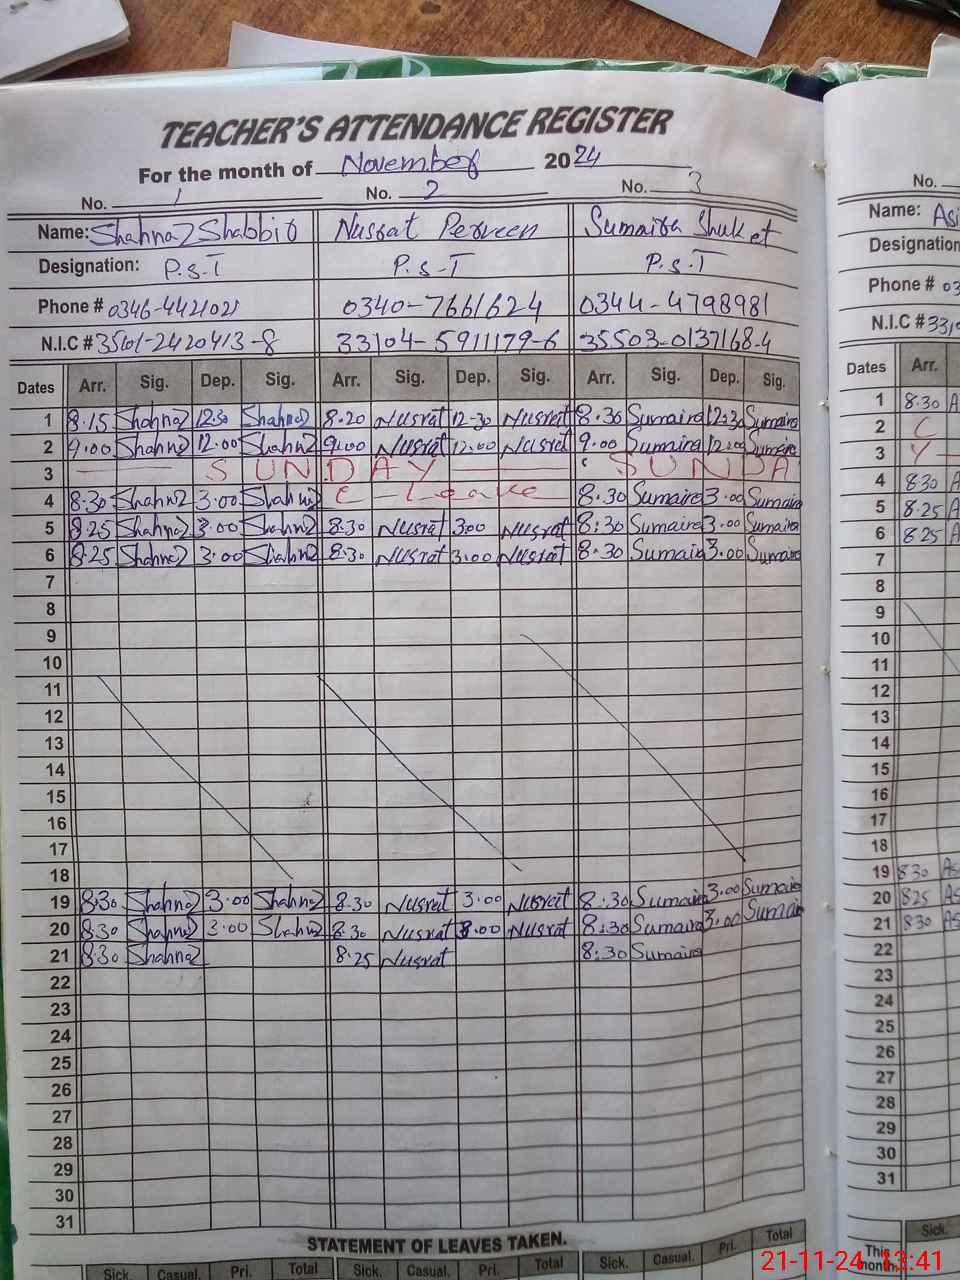 TEACHER'S ATTENDANCE REGISTER
For the month of November 2024
No. 1 No. 2 No. 3
Name: Shahnaz Shabbir Nusrat Perveen Sumaira Shuket
Designation: P.S.T P.S.T P.S.T
Phone # 0346-4421021 0340-7661624 0344-4798981
N.I.C # 35101-2420413-8 33104-5911179-6 35503-0137168-4
Dates Arr. Sig. Dep. Sig. Arr. Sig. Dep. Sig. Arr. Sig. Dep. Sig.
1 8.15 Shahnaz 12.30 Shahnaz 8.20 Nusrat 12-30 Nusrat 8.30 Sumaira 12.30 Sumaira
2 9.00 Shahnaz 12.00 Shahnaz 9.00 Nusrat 12.00 Nusrat 9.00 Sumaira 12.00 Sumaira
3 SUNDAY SUNDA
4 8.30 Shahnaz 3.00 Shahnaz C-Leave 8.30 Sumaira 3.00 Sumaira
5 8.25 Shahnaz 3.00 Shahnaz 8.30 Nusrat 3.00 Nusrat 8:30 Sumaira 3.00 Sumaira
6 8.25 Shahnaz 3.00 Shahnaz 8.30 Nusrat 3.00 Nusrat 8.30 Sumaira 3.00 Sumaira
7
8
9
10
11
12
13
14
15
16
17
18
19 8.30 Shahnaz 3.00 Shahnaz 8.30 Nusrat 3.00 Nusrat 8.30 Sumaira 3.00 Sumaira
20 8.30 Shahnaz 3.00 Shahnaz 8.30 Nusrat 3.00 Nusrat 8.30 Sumaira 3.00 Sumaira
21 8.30 Shahnaz 8.25 Nusrat 8:30 Sumaira
22
23
24
25
26
27
28
29
30
31
STATEMENT OF LEAVES TAKEN.
Sick. Casual. Pri. Total Sick. Casual. Pri. Total Sick. Casual. Pri. Total
No.
Name: Asi
Designation
Phone # 03
N.I.C # 331
Dates Arr.
1 8.30 A
2 C
3 Y
4 8.30 A
5 8.25 A
6 8.25 A
7
8
9
10
11
12
13
14
15
16
17
18
19 8.30 As
20 8.25 As
21 8.30 As
22
23
24
25
26
27
28
29
30
31
Sick.
This month.
21-11-24 13:41